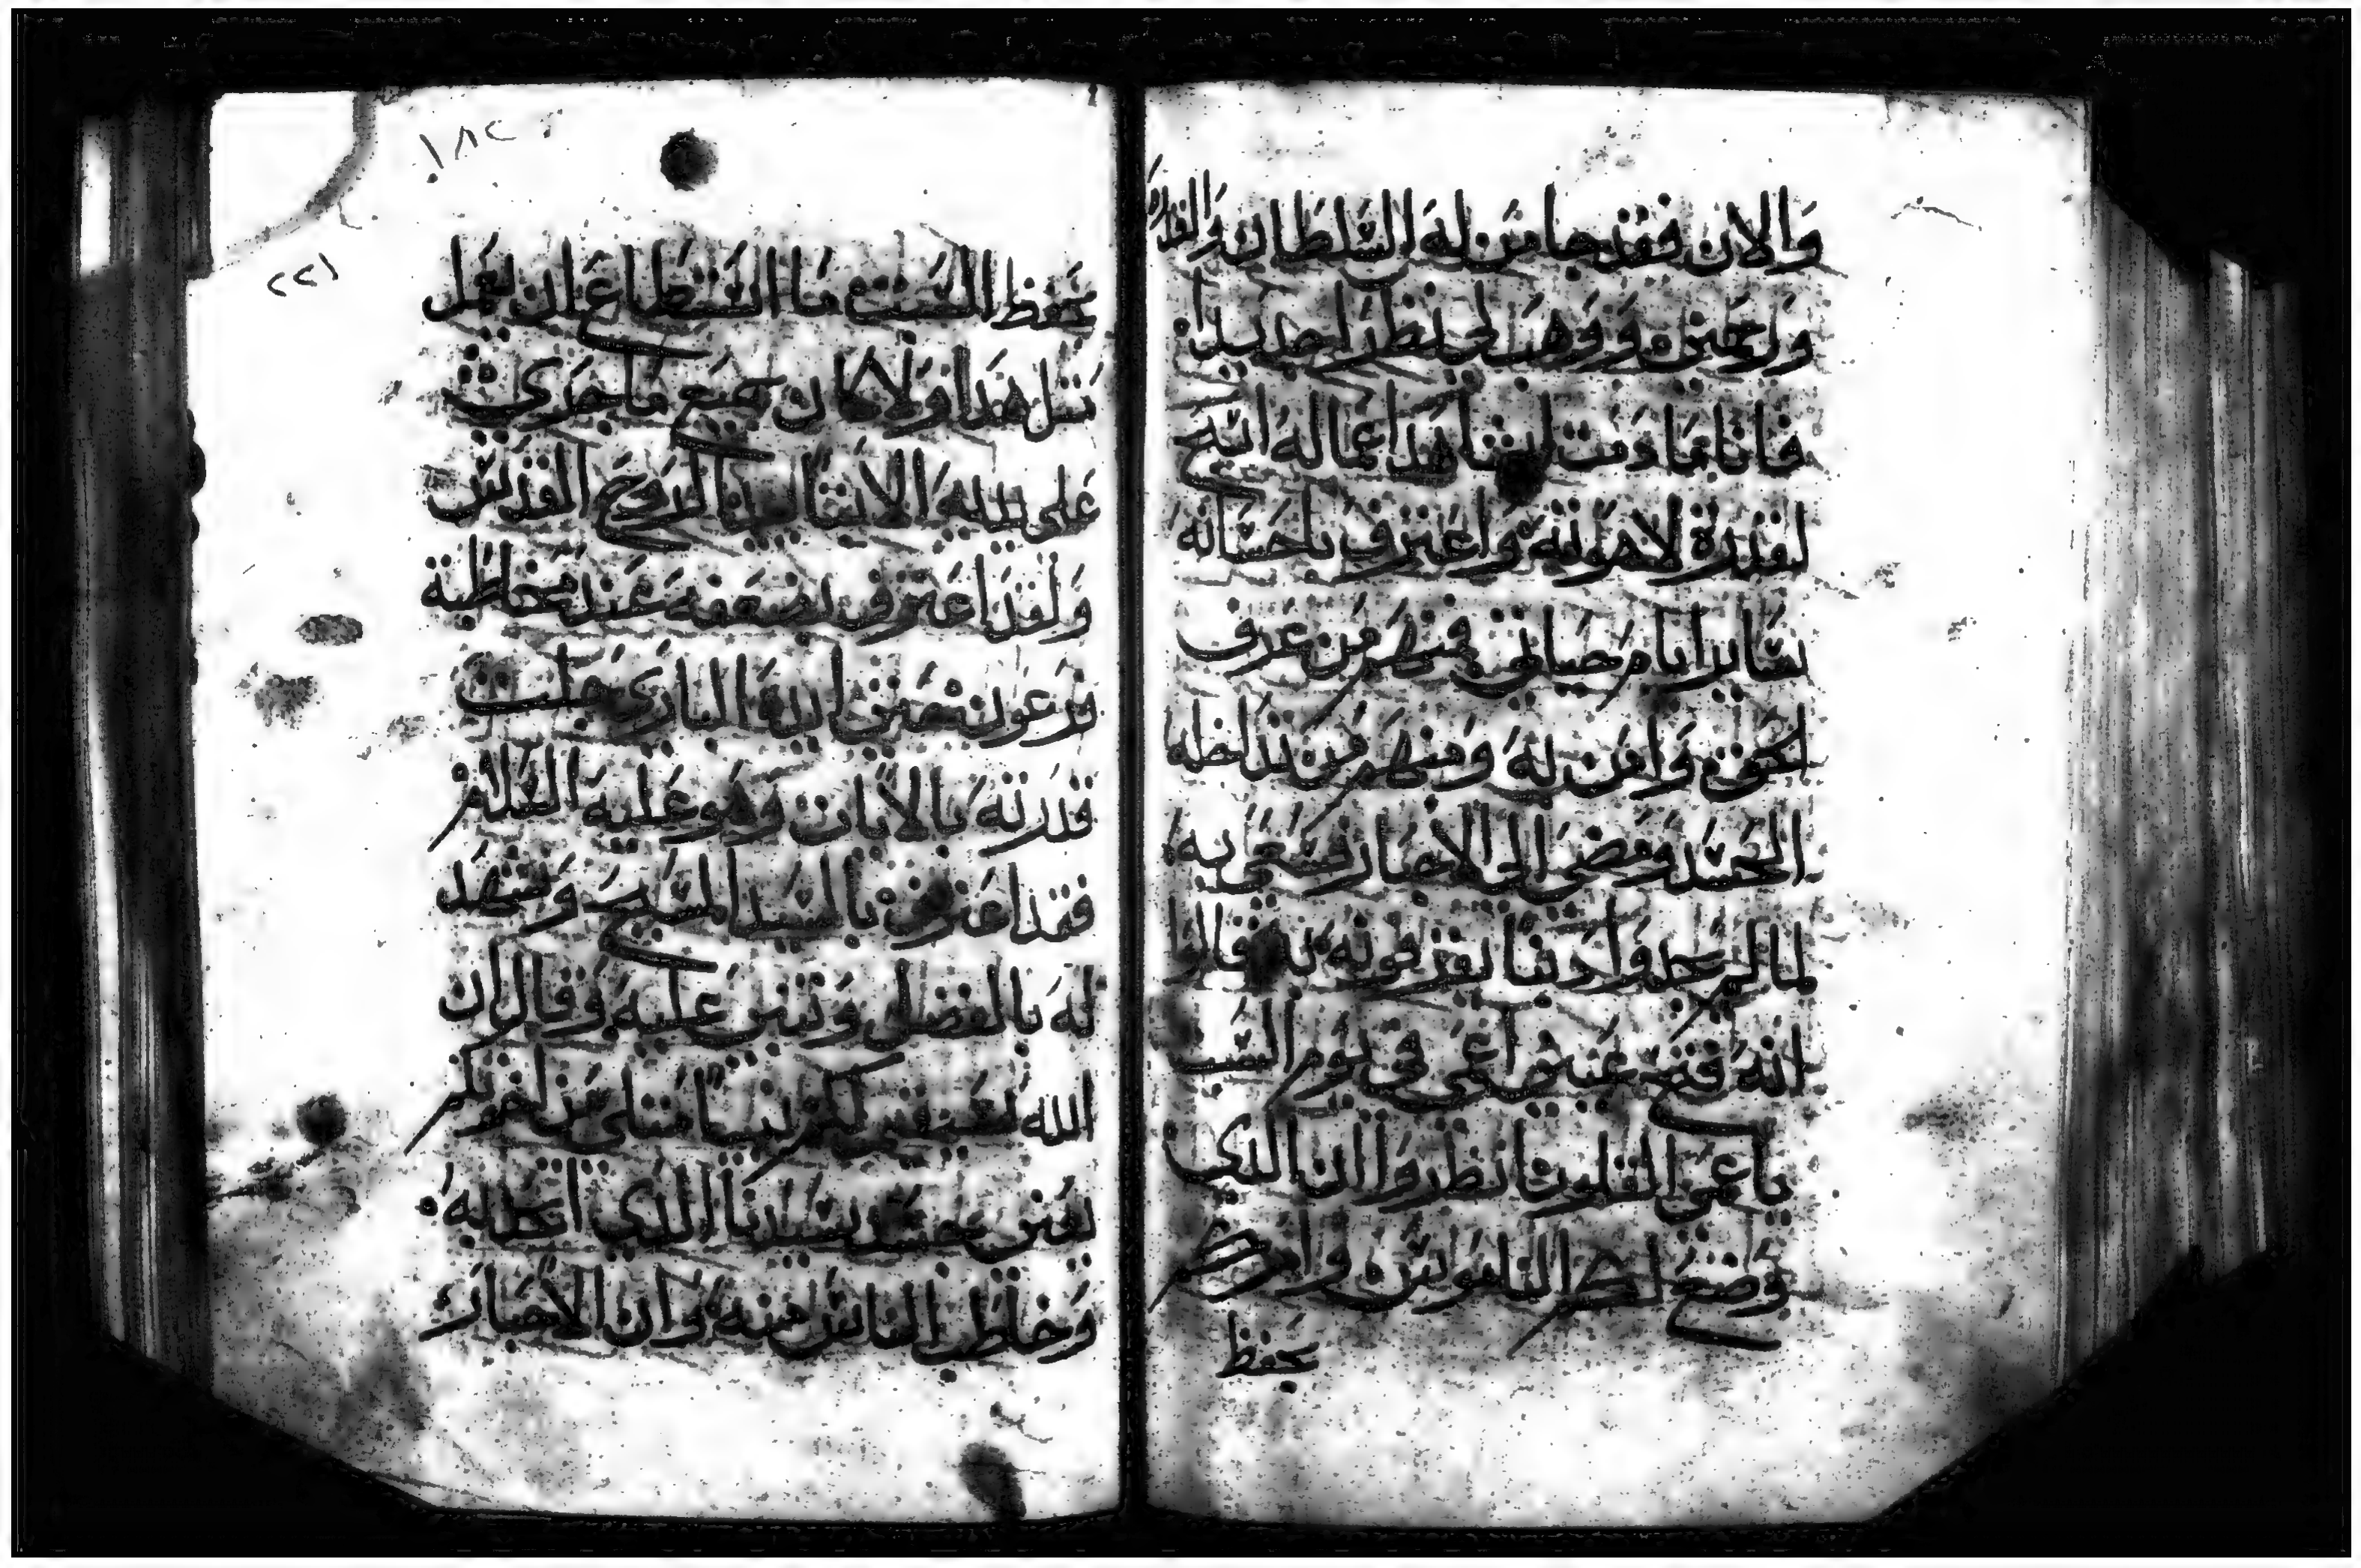 والان فقد جا من له السلطان والقدره
ورحمني ووهب لي نظرا جديدا
فانا مادمت لشاهدا عماله اسبح
لقدرة لاهوته واعترف باحسانه
ساير ايام حياتي فمنهم من عرف
الحق وامن به ومنهم من تداخله
الحسد ومضى الى الاحبار وسعى به
لما لم يجدوا دينا يقرفونه به قالوا
انه فتح عيني اعمى في يوم السبت
يا عمى القلوب انظروا ان الذي
وضع لكم الناموس وامركم
بحفظ
بحفظ السبت ما استطاع ان يعمل
مثل هذا ولا كان جميع ما جرى
على يديه الا بتاييد الروح القدس
ولقد اعترف بضعفه عند مخاطبة
فرعون يعني ايه الباري جلت
قدرته بالايات وهو عليه السلام
فقد اعترف بالسيد المسيح وشهد
له بالفضل وتنبى عليه وقال ان
الله سيقيم لكم نبيا مثلي من اخوتكم
يعني بجسد سيدنا الذي اتخذ به
وخاطب الناس منه وان الاحبار
١٨٢
٢٢١